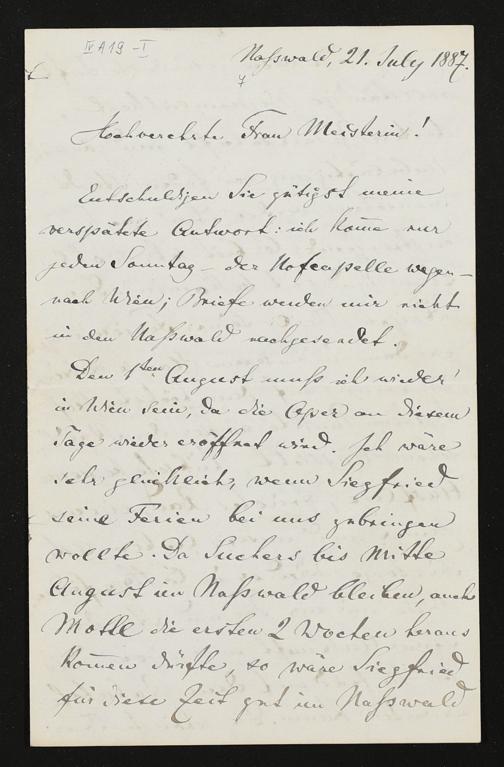 IV A 19 - I
Naßwald, 21. July 1887.
Hochverehrte Frau Meisterin!
Entschuldigen Sie gütigst meine
verspätete Antwort: ich kom̄e nur
jeden Sonntag – der Hofcapelle wegen –
nach Wien; Briefe werden mir nicht
in den Naßwald nachgesendet.
Den 1ten August muß ich wieder
in Wien sein, da die Oper an diesem
Tage wieder eröffnet wird. Ich wäre
sehr glücklich, wenn Siegfried
seine Ferien bei uns zubringen
wollte. Da Suchers bis Mitte
August im Naßwald bleiben, auch
Mottl die ersten 2 Wochen heraus
kom̄en dürfte, so wäre Siegfried
für diese Zeit gut im Naßwald